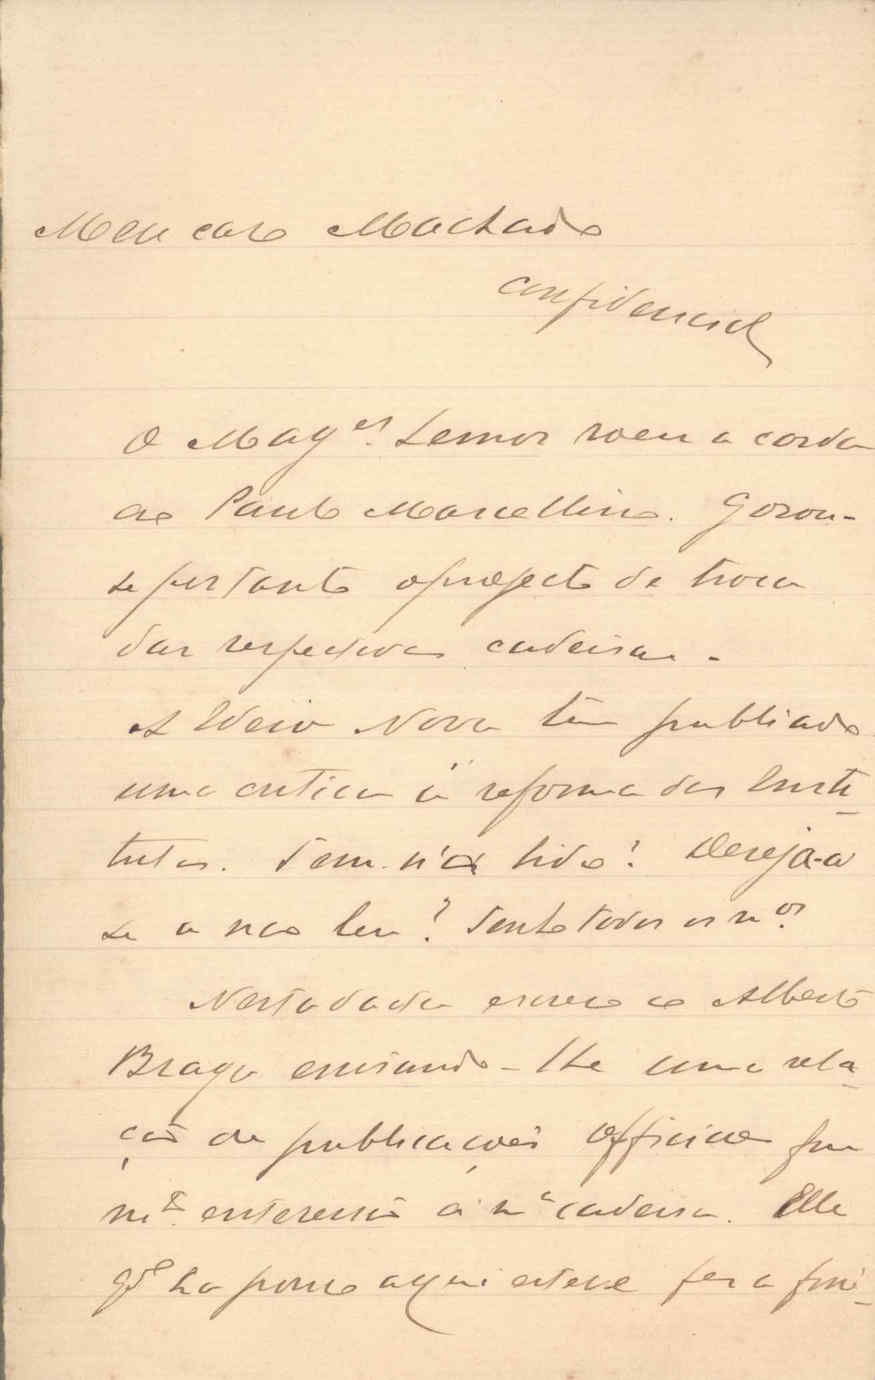 Meu caro Machado
Confidencial
O Mag.es Lemos roeu a corda
ao Paulo Marcellino. Gorou-
se portanto o projecto de troca
das respectivas cadeiras.
A Ideia Nova tem publicado
uma critica á reforma dos Insti-
tutos. Tem-n'a lido? Deseja-a
se a não leu? Tenho todos os n.os
Nesta data escrevo ao Alberto
Braga enviando-lhe uma rela-
ção de publicações officiaes que
m.to interessão á m.a cadeira. Elle
q.do ha pouco aqui esteve fez a fine-